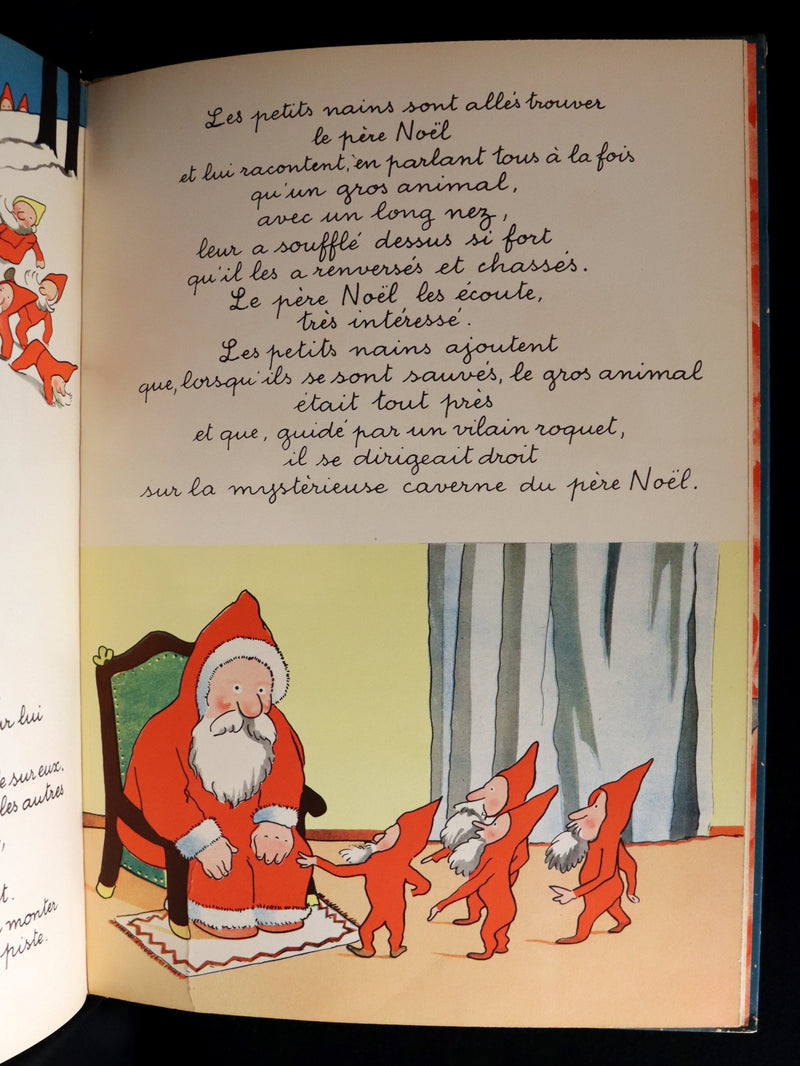 ur lui
e sur eux.
les autres
,
t.
monter
piste.
Les petits nains sont allés trouver
le père Noël
et lui racontent, en parlant tous à la fois
qu'un gros animal,
avec un long nez,
leur a soufflé dessus si fort
qu'il les a renversés et chassés.
Le père Noël les écoute,
très intéressé.
Les petits nains ajoutent
que, lorsqu'ils se sont sauvés, le gros animal
était tout près
et que, guidé par un vilain roquet,
il se dirigeait droit
sur la mystèrieuse caverne du père Noël.